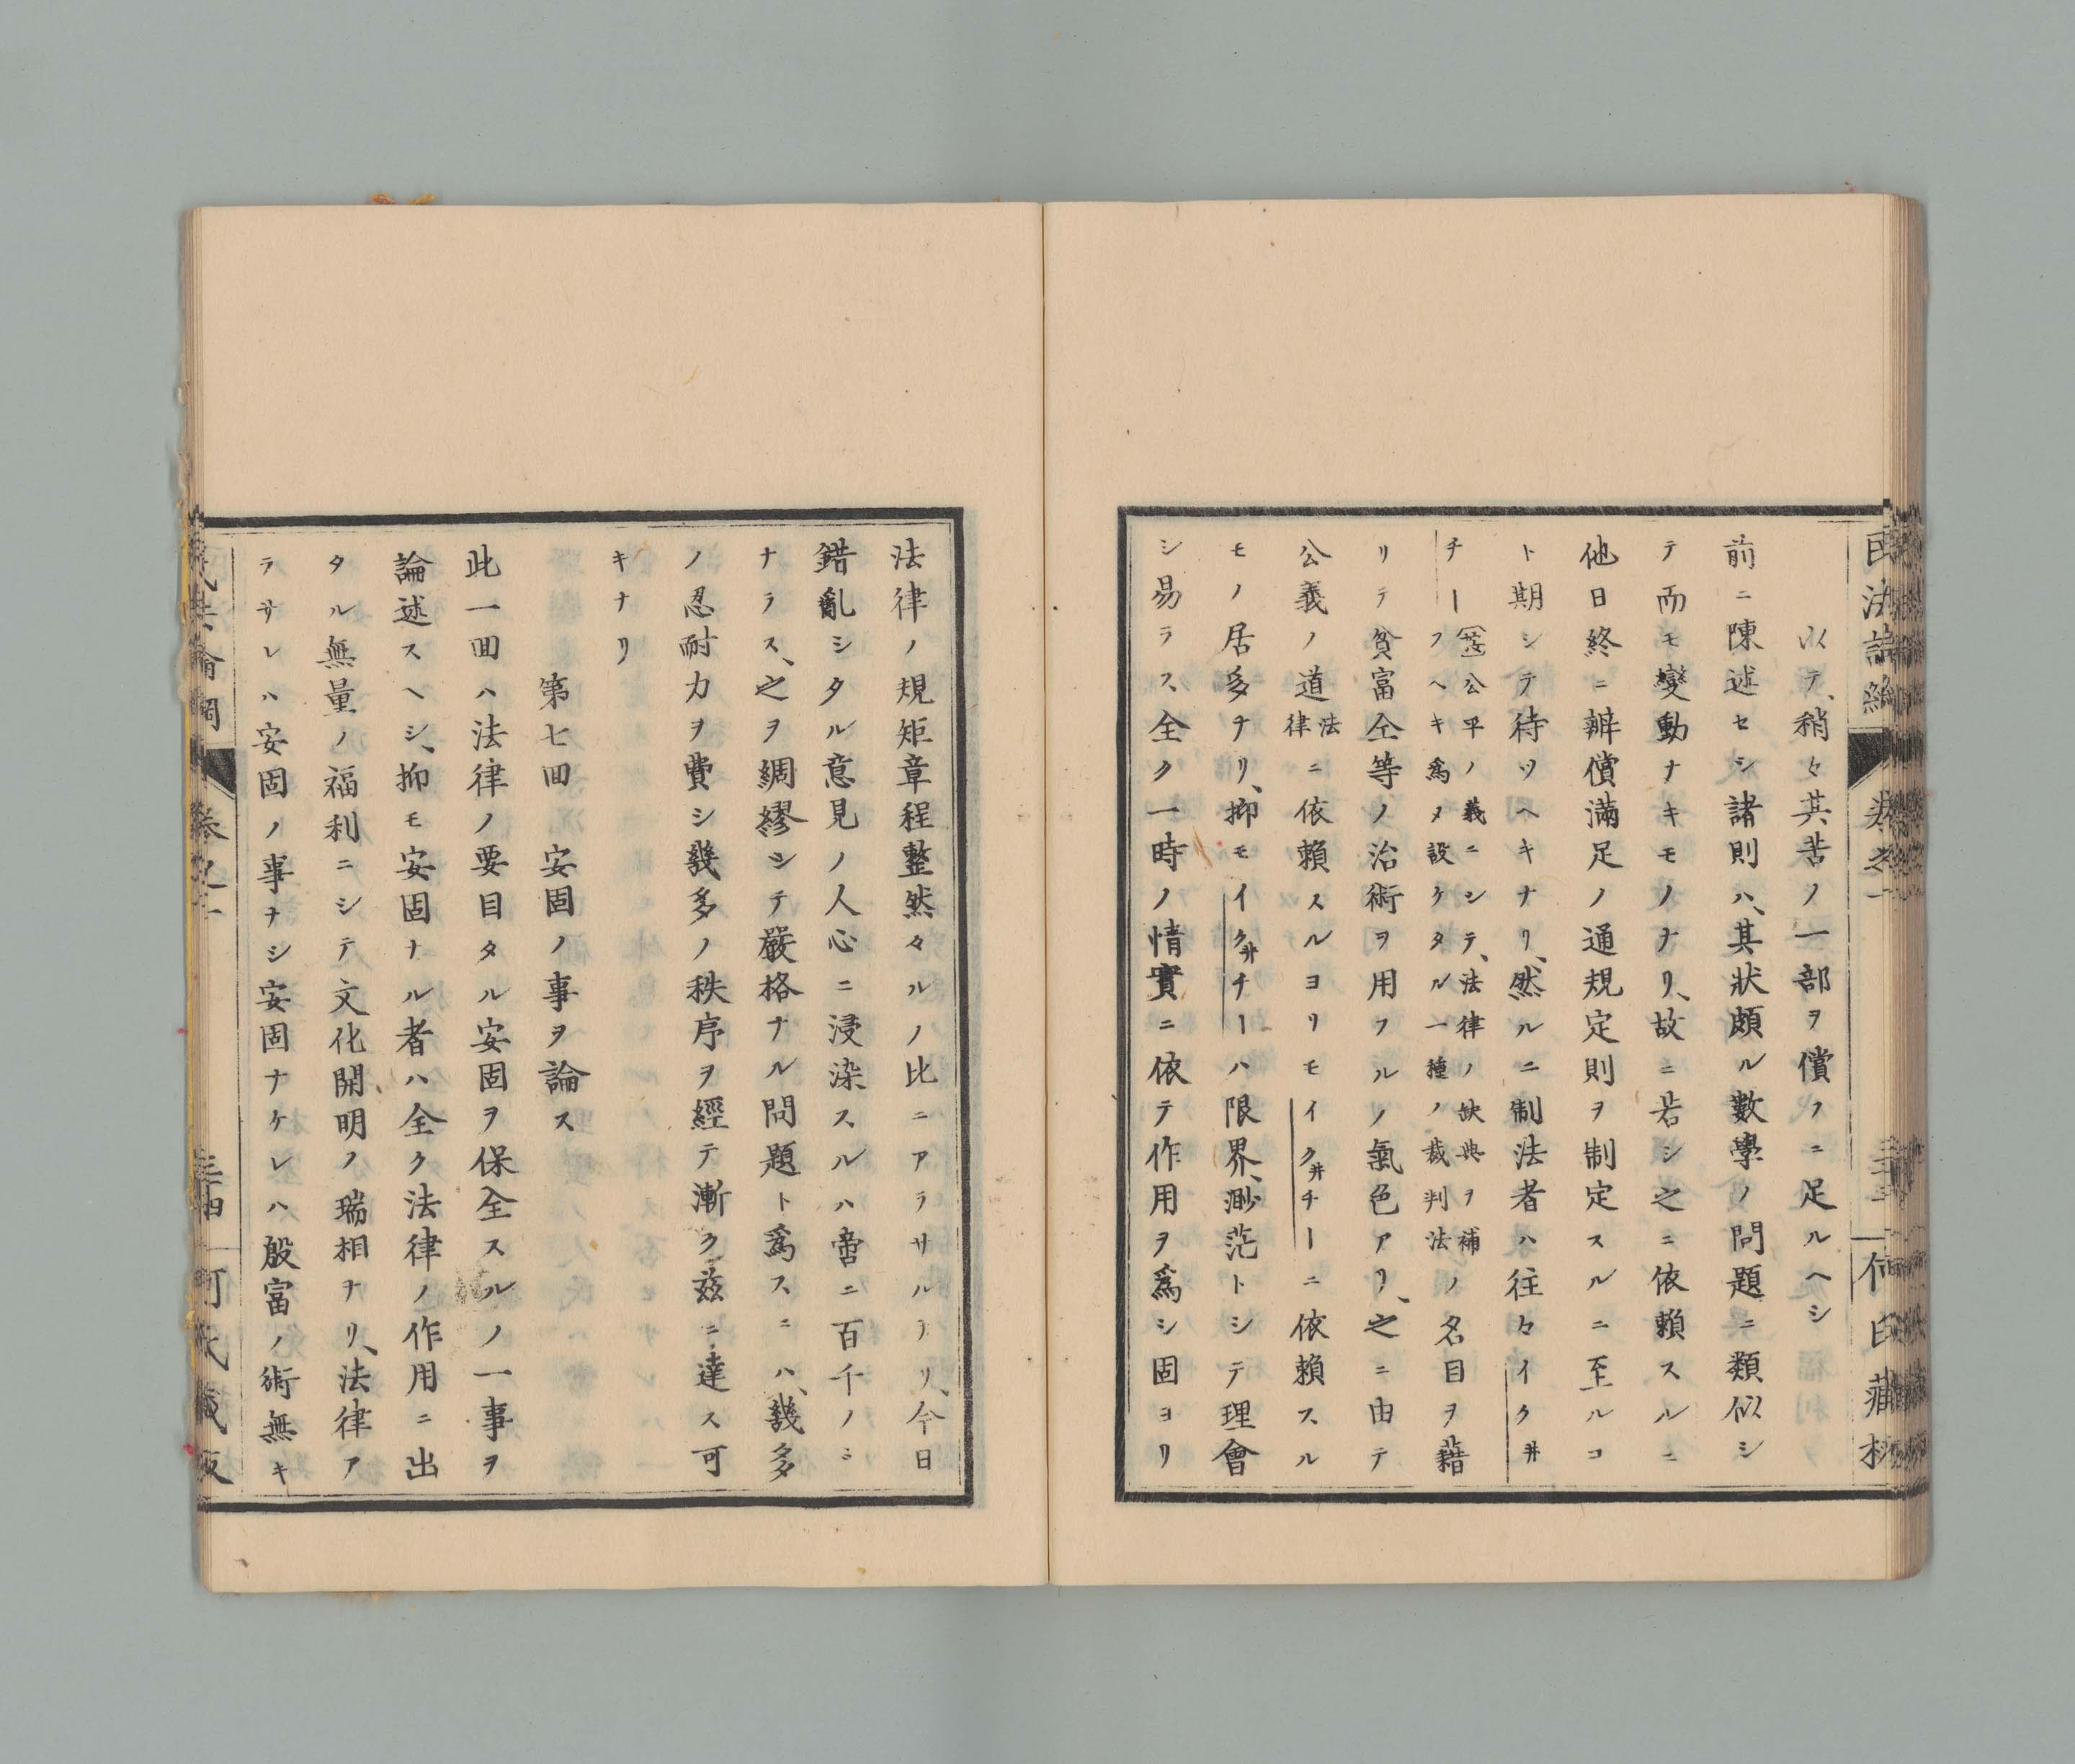 以テ、稍々其苦ノ一部ヲ償フニ足ルヘシ
前ニ陳述セシ諸則ハ、其狀頗ル數學ノ問題ニ類似シ
テ而モ變動ナキモノナリ、故ニ若シ之ニ依賴スルニ
他日終ニ辨償滿足ノ通規定則ヲ制定スルニ至ルコ
ト期シテ待ツヘキナリ、然ルニ制法者ハ往々イクヰ
チー
公平ノ義ニシテ、法律ノ缺典ヲ補
フヘキ爲メ設ケタル一種ノ裁判法
ノ名目ヲ藉
リテ貧富仝等ノ治術ヲ用フルノ氣色アリ、之ニ由テ
公義ノ道
法
律
ニ依賴スルヨリモイクヰチーニ依賴スル
モノ居多ナリ、抑モイクヰチーハ限界、渺茫トシテ理會
シ易ラス、全ク一時ノ情實ニ依テ作用ヲ爲シ固ヨリ
法律ノ規矩章程整然々ルノ比ニアラサルナリ、今日
錯亂シタル意見ノ人心ニ浸染スルハ啻ニ百千ノミ
ナラス、之ヲ綢繆シテ嚴格ナル問題ト爲スニハ、幾多
ノ忍耐力ヲ費シ幾多ノ秩序ヲ經テ漸ク茲ニ達ス可
キナリ
第七回 安固ノ事ヲ論ス
此一回ハ法律ノ要目タル安固ヲ保全スルノ一事ヲ
論述スヘシ、抑モ安固ナル者ハ全ク法律ノ作用ニ出
タル無量ノ福利ニシテ文化開明ノ瑞相ナリ、法律ア
ラサレハ安固ノ事ナシ安固ナケレハ殷富ノ術無キ